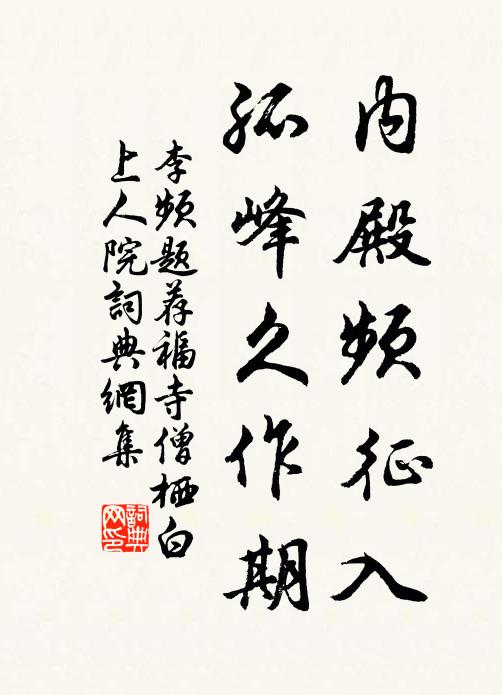 内殿频征入
孤峰久作期
李频题荐福寺僧栖白
上人院詞典網集
詞典
网印